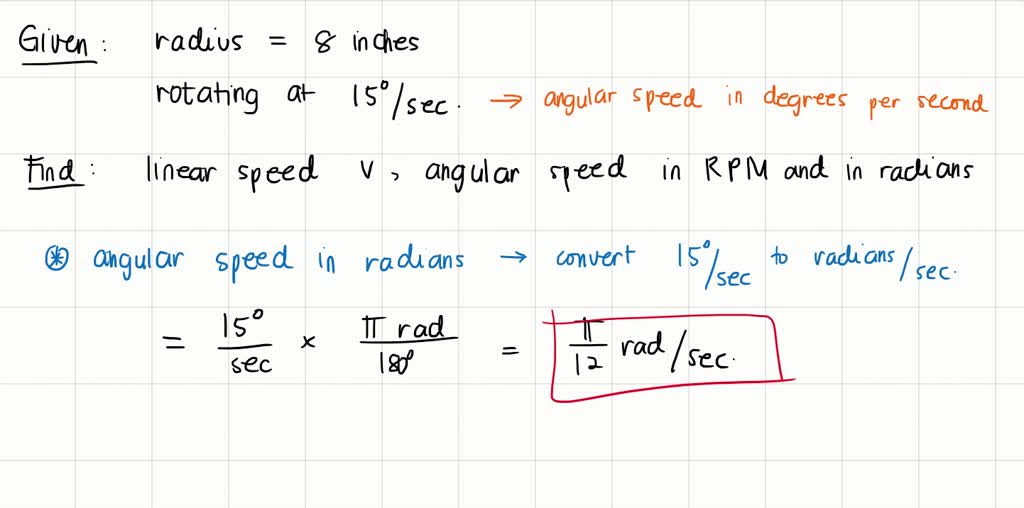 Given: radius = 8 inches
rotating at 15°/sec. → angular speed in degrees per second
Find: linear speed v, angular speed in RPM and in radians
⊛ angular speed in radians → convert 15°/sec to radians/sec.
= 15°/sec × π rad/180° = π/12 rad/sec.